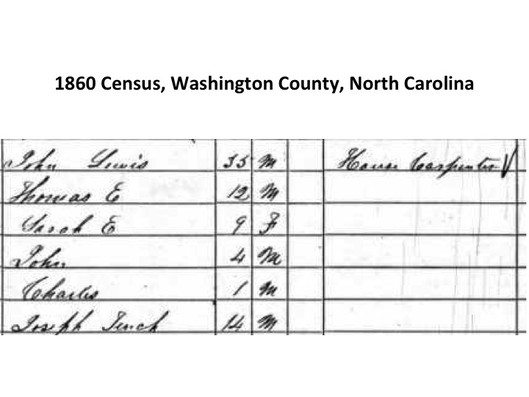 1860 Census, Washington County, North Carolina
John Lewis 35 M House Carpenter
Thomas E 12 M
Sarah E 9 F
John 4 M
Charles 1 M
Joseph 14 M